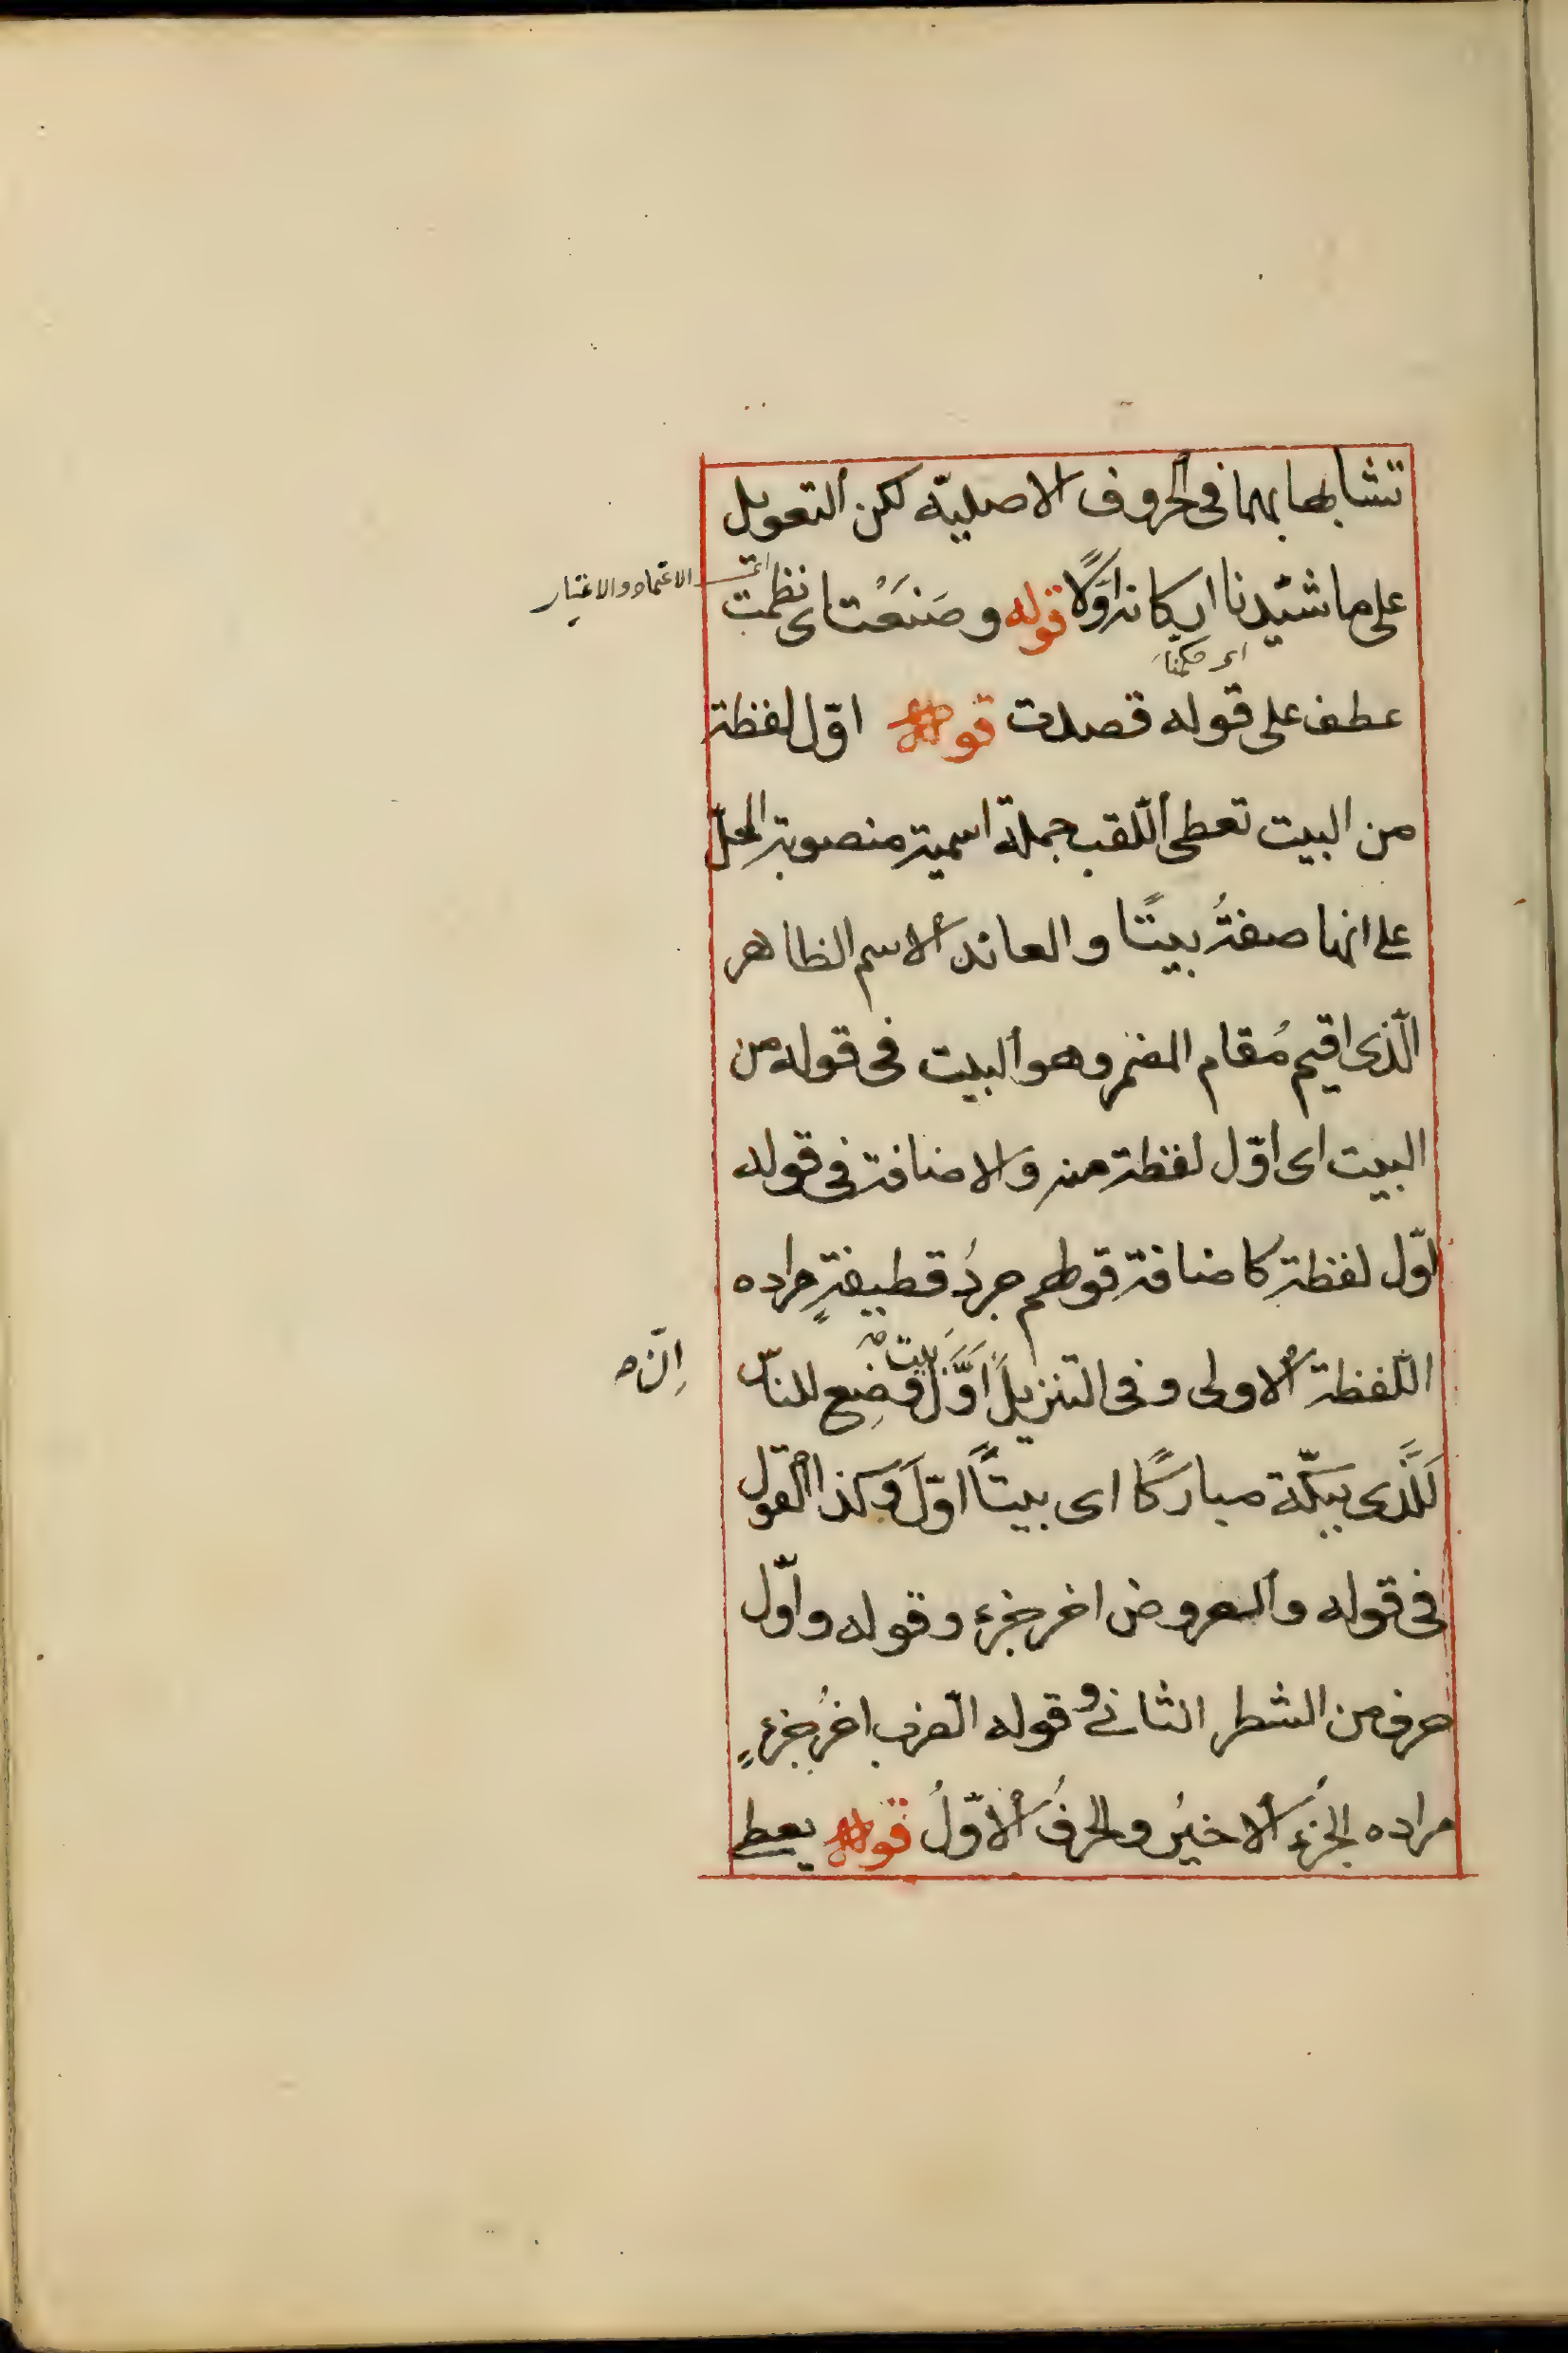 تشابهما بهما فى الحروف الاصليّة لكن التعويل
على ما شيّدنا اركانه اوّلًا قوله وصَنَعْتُ اى نظمت
اى الاعتماد والاعتبار
اى مكّنّا
عطف على قوله قصدت قوله اوّل لفظة
من البيت تعطى اللّقب جملة اسمية منصوبة المحلّ
على انها صفةُ بيتًا والعائد الاسم الظاهر
الّذى اقيم مُقام المضمر وهو البيت فى قوله من
البيت اى اوّل لفظة منه والاضافة فى قوله
اوّل لفظة كاضافة قولهم جردُ قطيفةٍ مراده
اللّفظة الاولى وفى التنزيل اَوَّلَ بَيت وُضِع للنّاس
اِنّ
لَلَّذى ببكّة مباركًا اى بيتًا اوّلَ وكذا القول
فى قوله والعروض اخر جزء وقوله واوّل
حرف من الشطر الثانى وقوله الضرب اخرُ جزءٍ
مراده الجزءُ الاخيرُ والحرفُ الاوّلُ قوله يعطى